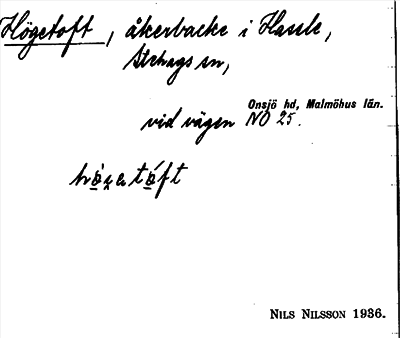 Högetoft, åkerbacke i Hassle,
Stehags sn,
Onsjö hd, Malmöhus län.
vid vägen NO 25.
NILS NILSSON 1936.